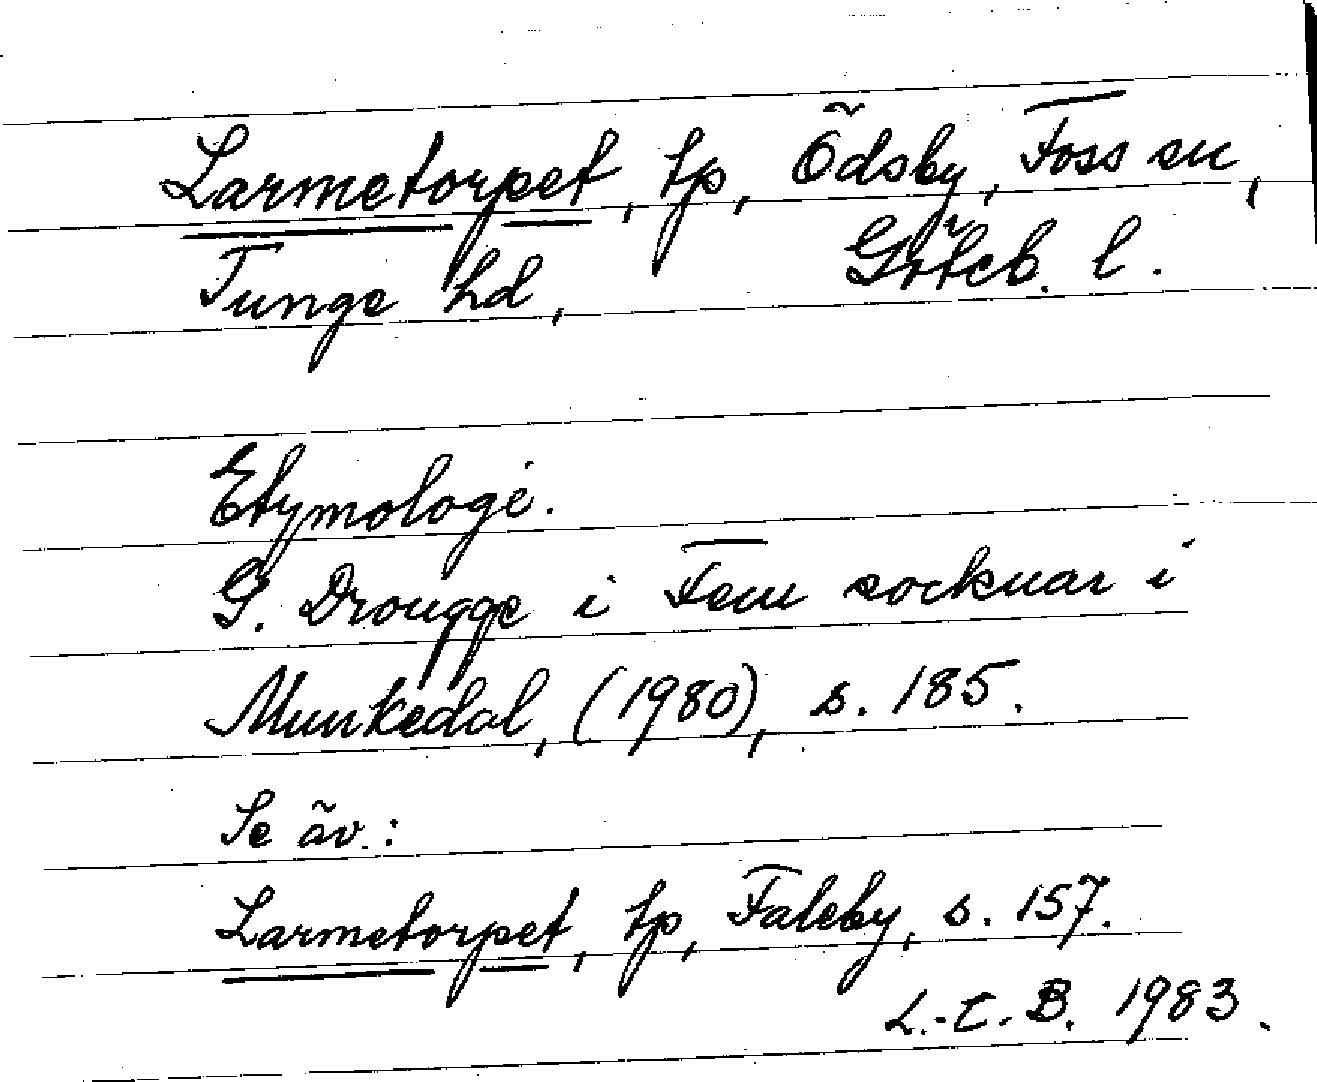 Larmetorpet, tp, Ödsby, Foss sn,
Tunge hd, Göteb. l.
Etymologi.
G. Drougge i Fem socknar i
Munkedal, (1980), s. 185.
Se äv.:
Larmetorpet, tp, Faleby, s. 157.
L.-C. B. 1983.